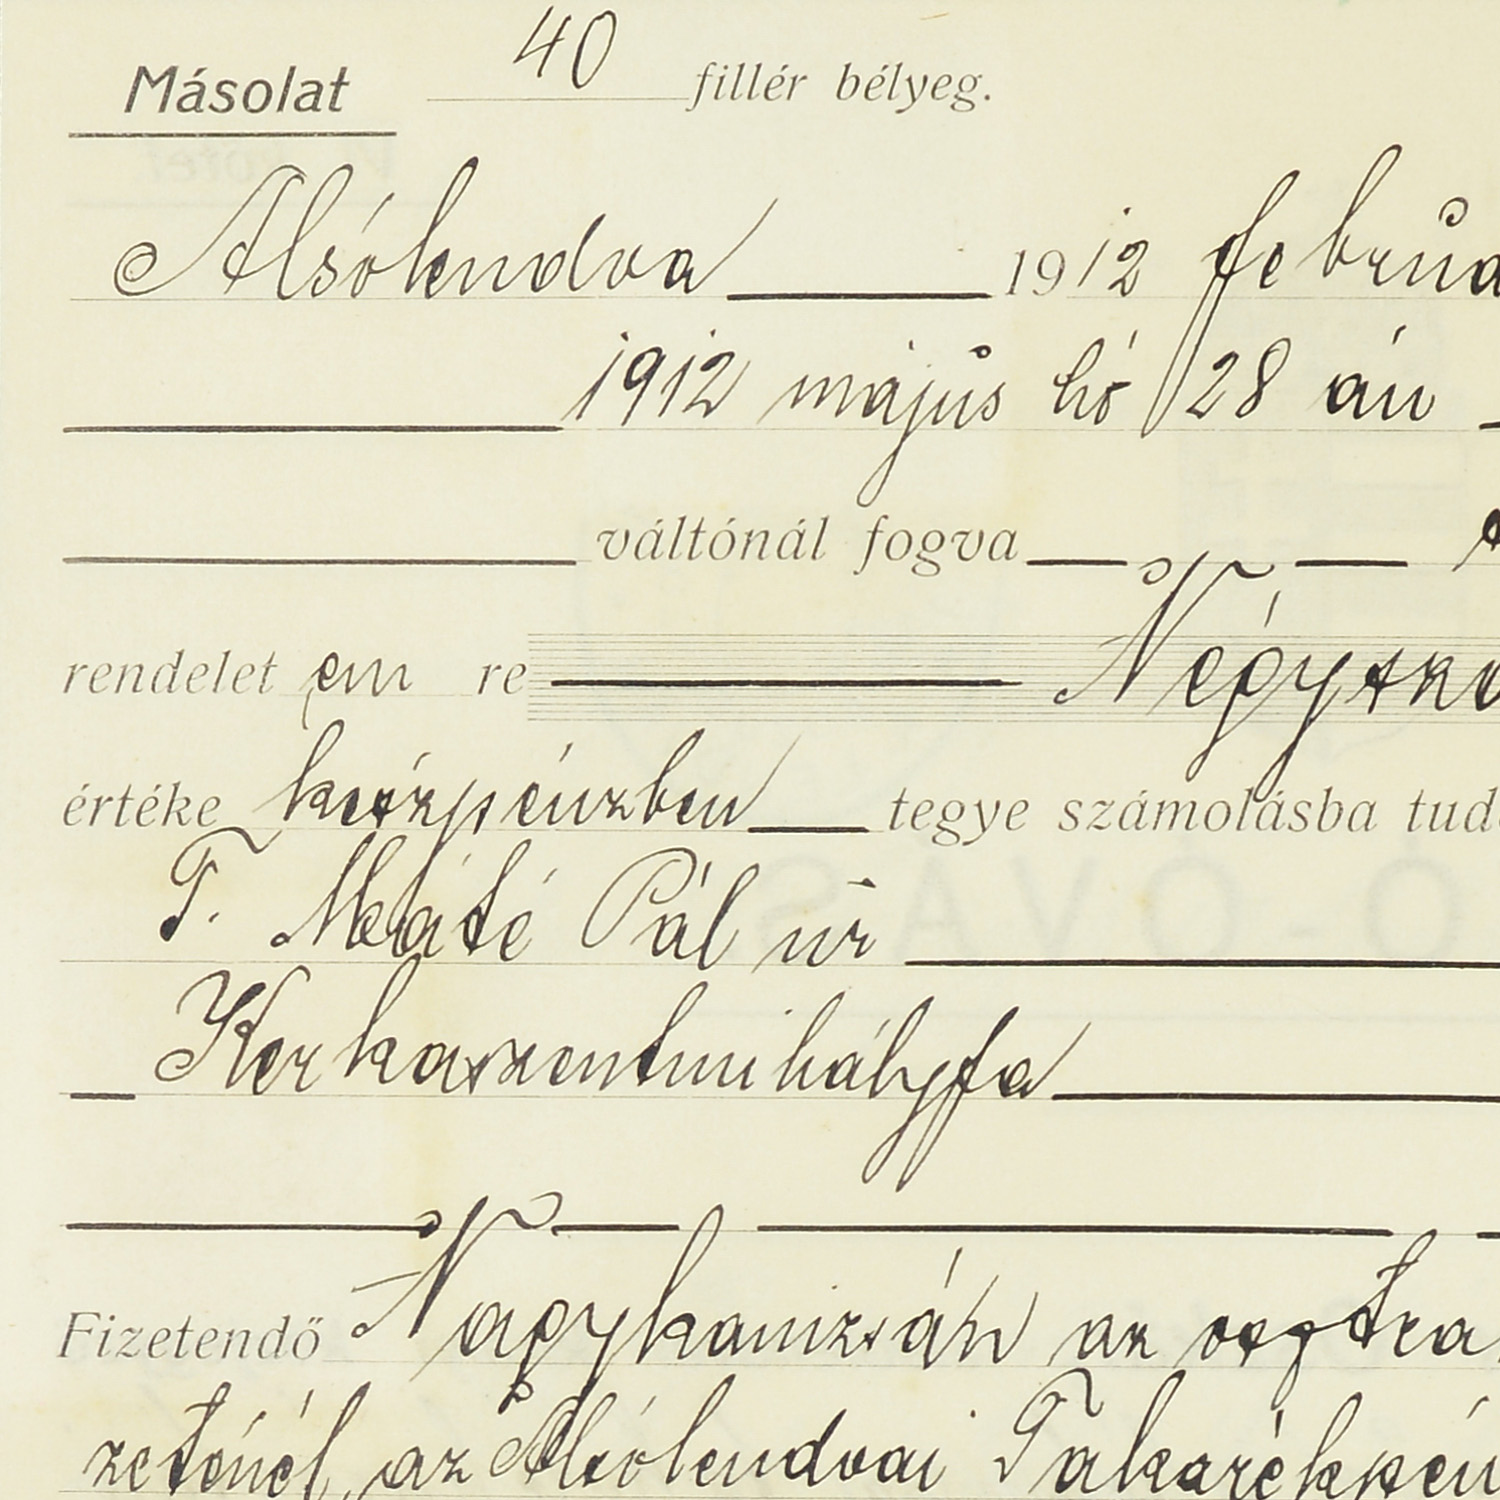 Másolat 40 fillér bélyeg.
Alsólendva 1912 febru
1912 május hó 28 án
váltónál fogva
rendelet em re Négyszá
értéke készpénzben tegye számolásba tud
T. Máté Pál úr
Kerkaszentmihályfa
Fizetendő Nagykanizsán az
az Alsólendvai Takarékpén